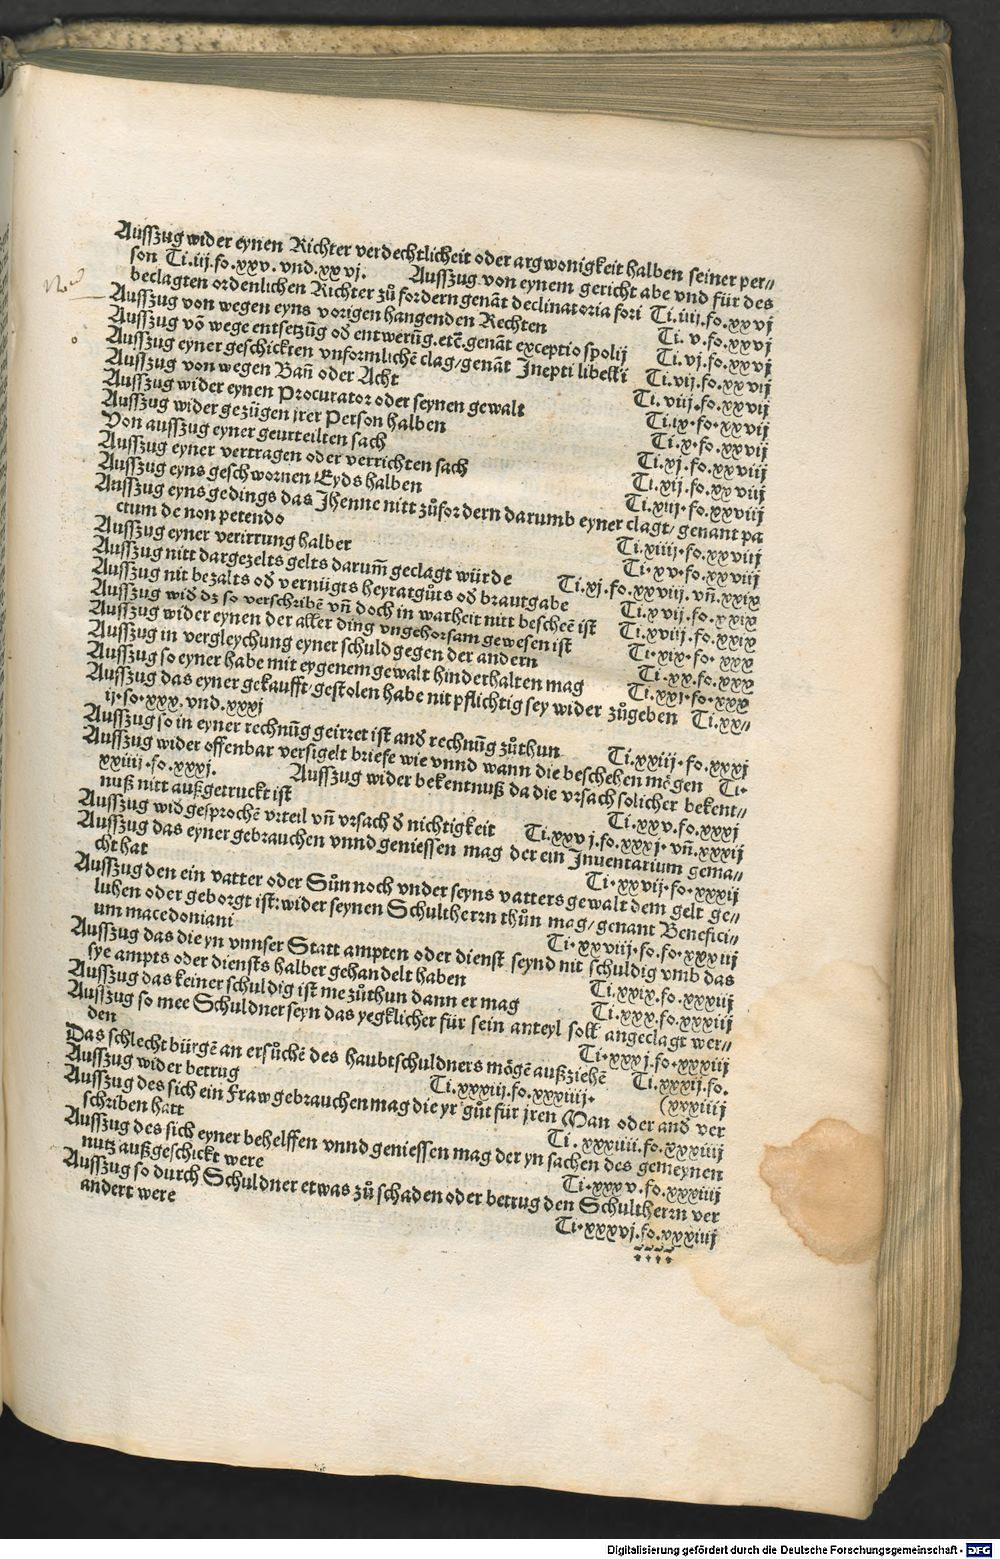 Ausszug wider eynen Richter verdechtlicheit oder argwonigkeit halben seiner per⸗
son Ti.iij.fo.xxv. vnd.xxvj. Ausszug von eynem gericht abe vnd für des
beclagten ordenlichen Richter zů fordern genāt declinatoria fori Ti.iiij.fo.xxvj
Ausszug von wegen eyns vorigen hangenden Rechten Ti.v.fo.xxvj
Ausszug vō wege entsetzūg oď entwerūg.etc̄.genāt exceptio spolij Ti.vj.fo.xxvj
Ausszug eyner geschickten vnformlichē clag/genāt Inepti libelli Ti.vij.fo.xxvij
Ausszug von wegen Bañ oder Acht Ti.viij.fo.xxvij
Ausszug wider eynen Procurator oder seynen gewalt Ti.ix.fo.xxvij
Ausszug wider gezügen jrer Person halben Ti.x.fo.xxvij
Von ausszug eyner geurteilten sach Ti.xj.fo.xxviij
Ausszug eyner vertragen oder verrichten sach Ti.xij.fo.xxviij
Ausszug eyns geschwornen Eyds halben Ti.xiij.fo.xxviij
Ausszug eyns gedings das Jhenne nitt zůfordern darumb eyner clagt/genant pa
ctum de non petendo Ti.xiiij.fo.xxviij
Ausszug eyner verirrung halber Ti.xv.fo.xxviij
Ausszug nitt dargezelts gelts darum̄ geclagt würde Ti.xj.fo.xxviij.vn̄.xxix
Ausszug nit bezalts oď vernügts heyratgůts oď brautgabe Ti.xvij.fo.xxix
Ausszug wiď dz so verschribē vn̄ doch in warheit nitt bescheē ist Ti.xviij.fo.xxix
Ausszug wider eynen der aller ding vngehorsam gewesen ist Ti.xix.fo.xxx
Ausszug in vergleychung eyner schuld gegen der andern Ti.xx.fo.xxx
Ausszug so eyner habe mit eygenem gewalt hinderhalten mag Ti.xxj.fo.xxx
Ausszug das eyner gekaufft/gestolen habe nit pflichtig sey wider zůgeben Ti.xx⸗
ij.fo.xxx.vnd.xxxj
Ausszug so in eyner rechnūg geirret ist anď rechnūg zůthun Ti.xxiij.fo.xxxj
Ausszug wider offenbar versigelt briefe wie vnnd wann die beschehen mögen Ti.
xxiiij.fo.xxxj. Ausszug wider bekentnuß da die vrsach solicher bekent⸗
nuß nitt außgetruckt ist Ti.xxv.fo.xxxj
Ausszug wiď gesprochē vrteil vn̄ vrsach ď nichtigkeit Ti.xxvj.fo.xxxj.vn̄.xxxij
Ausszug das eyner gebrauchen vnnd geniessen mag der ein Inuentarium gema⸗
cht hat Ti.xxvij.fo.xxxij
Ausszug den ein vatter oder Sůn noch vnder seyns vatters gewalt dem gelt ge⸗
luhen oder geborgt ist:wider seynen Schultherrn thůn mag/genant Benefici⸗
um macedoniani Ti.xxviij.fo.fo.xxxiij
Ausszug das die yn vnnser Statt ampten oder dienst seynd nit schuldig vmb das
sye ampts oder diensts halber gehandelt haben Ti.xxix.fo.xxxiij
Ausszug das keiner schuldig ist me zůthun dann er mag Ti.xxx.fo.xxxiij
Ausszug so mee Schuldner seyn das yegklicher für sein anteyl soll angeclagt wer⸗
den Ti.xxxj.fo.xxxiij
Das schlecht bürgē an ersůchē des haubtschuldners mögē außziehē Ti.xxxij.fo.
Ausszug wider betrug Ti.xxxiij.fo.xxxiiij. (xxxiiij
Ausszug des sich ein Fraw gebrauchen mag die yr gůt für jren Man oder anď ver
schriben hatt Ti.xxxiiii.fo.xxxiiij
Ausszug des sich eyner behelffen vnnd geniessen mag der yn sachen des gemeynen
nutz außgeschickt were Ti.xxxv.fo.xxxiiij
Ausszug so durch Schuldner etwas zů schaden oder betrug den Schultherrn ver
andert were Ti.xxxvj.fo.xxxiiij
Digitalisierung gefördert durch die Deutsche Forschungsgemeinschaft - DFG